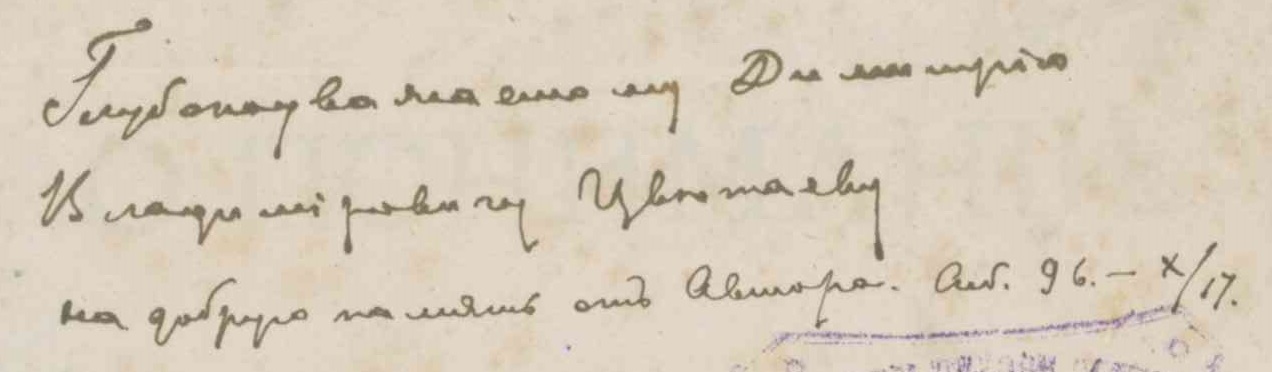 Глубокоуважаемому Димитрію
Владиміровичу Цвѣтаеву
на добрую память отъ Автора. Спб. 96. – X/17.